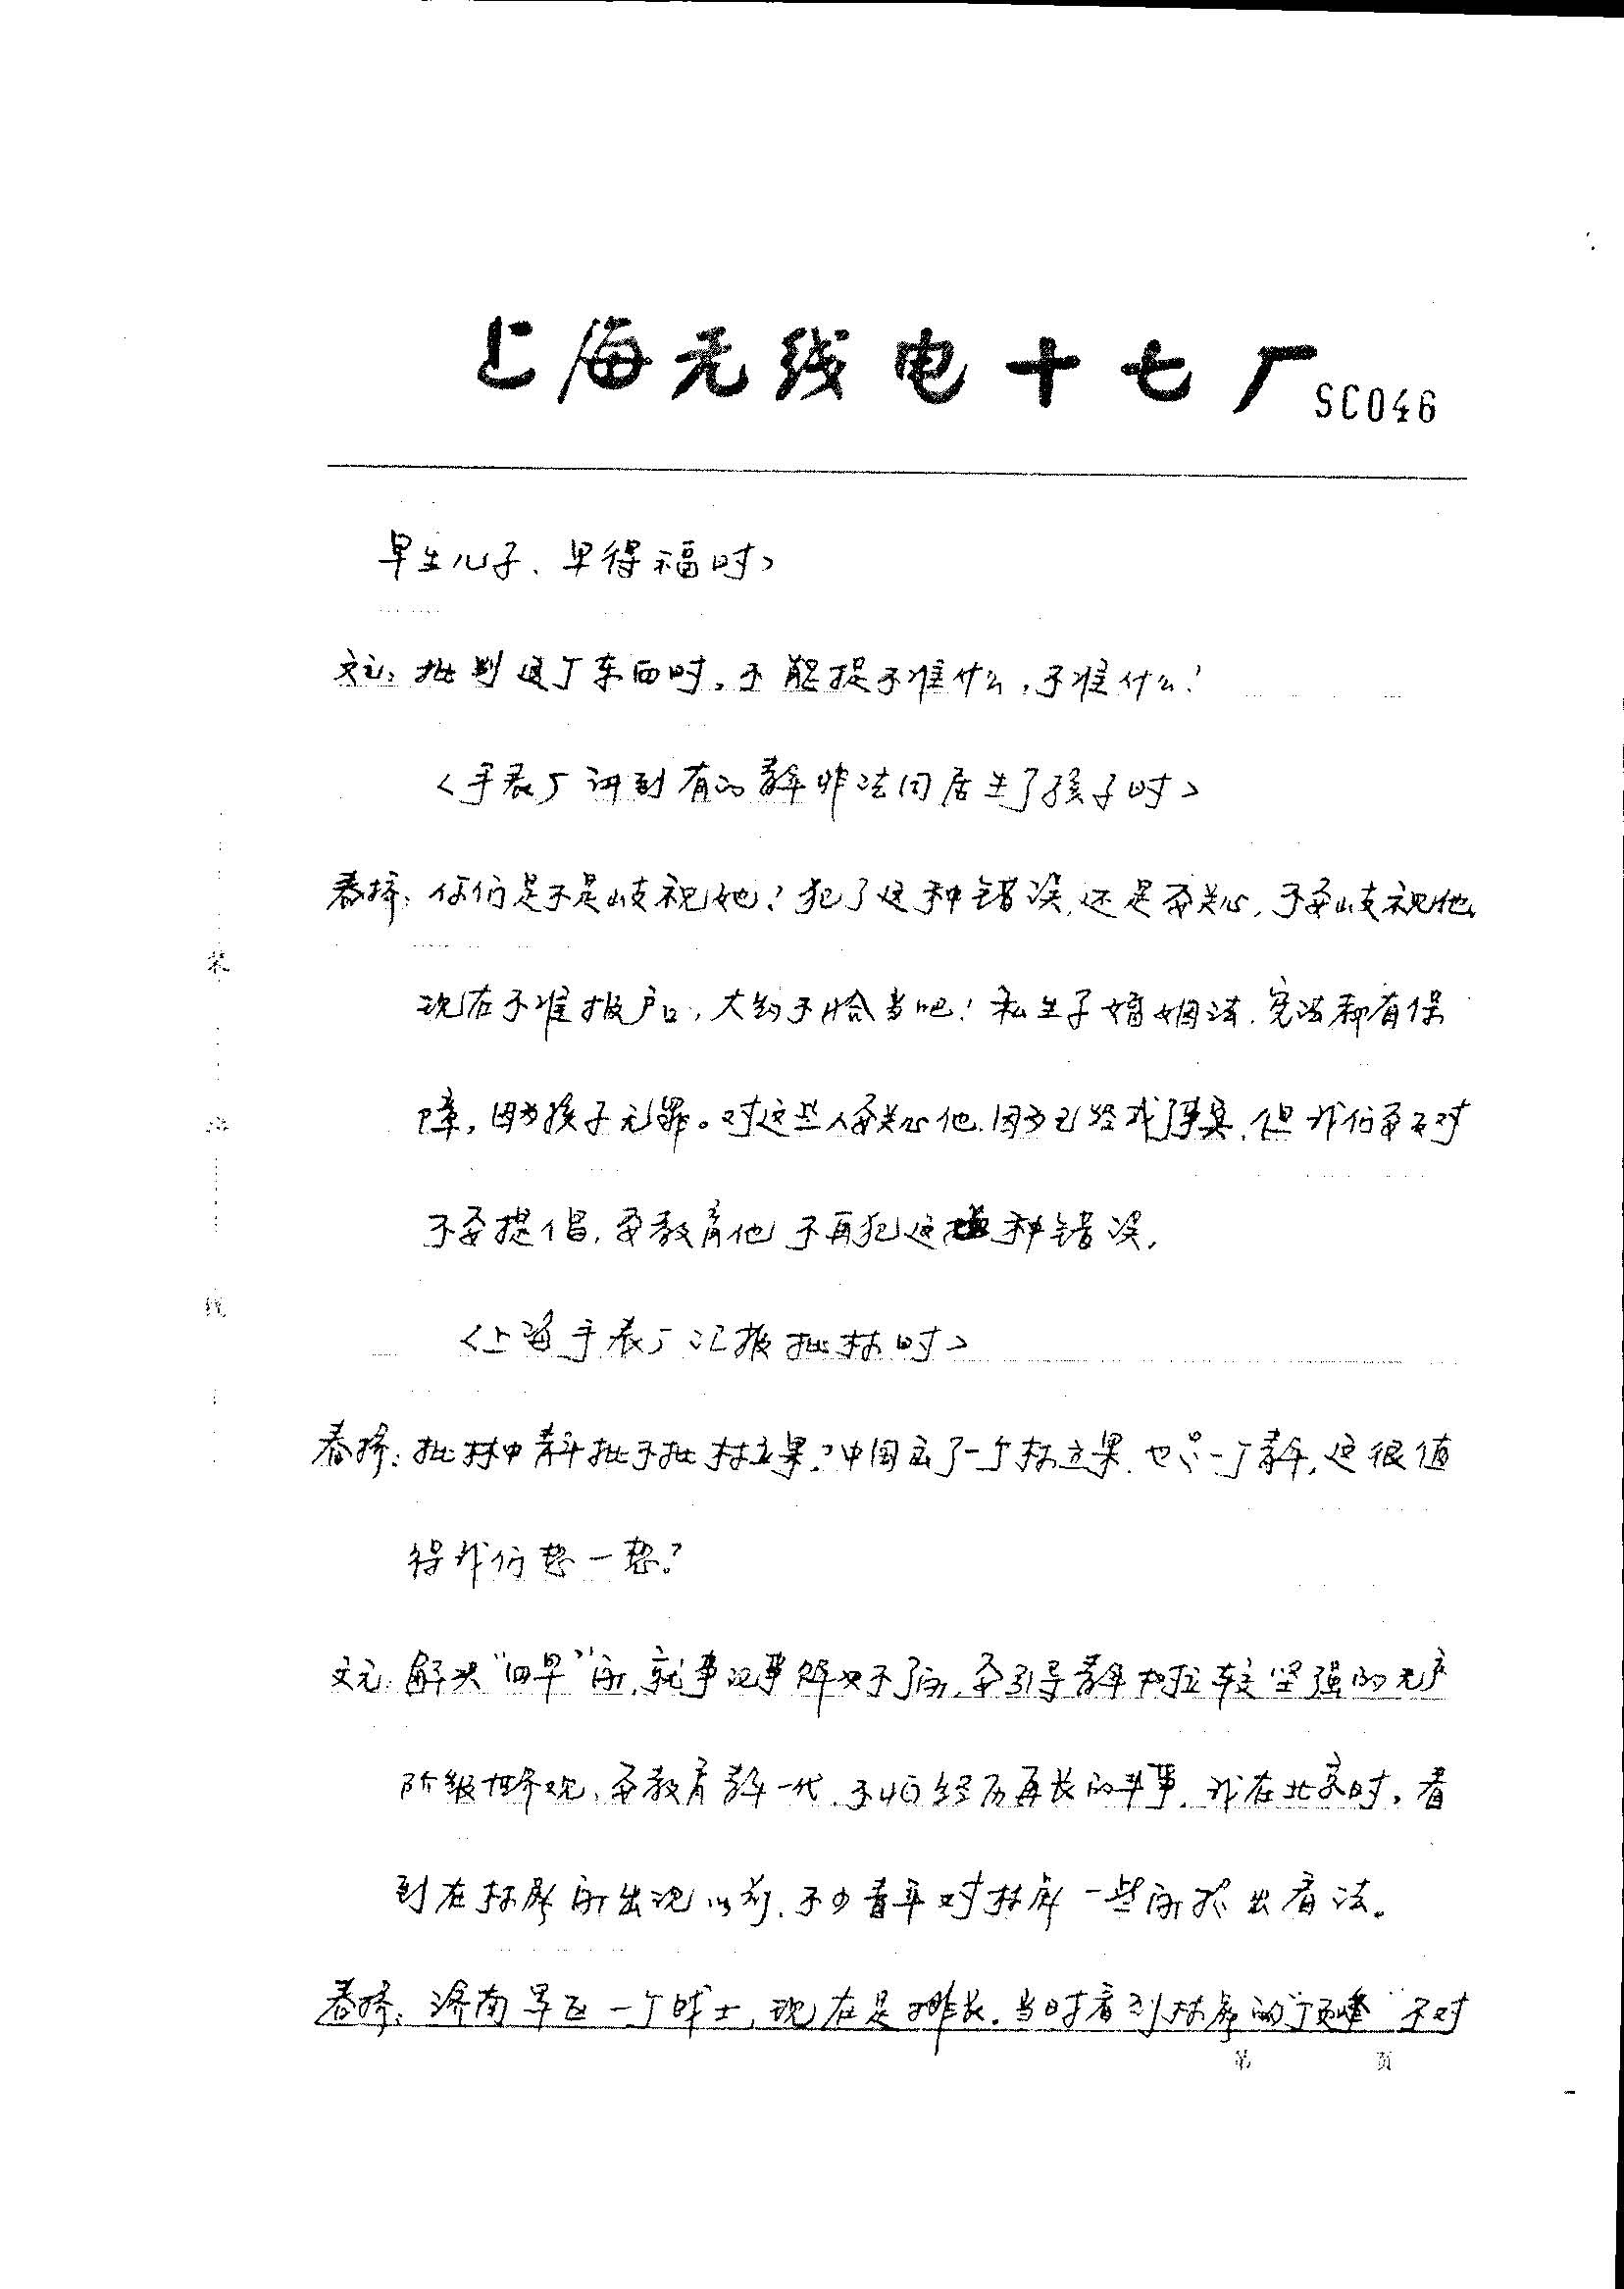 上海无线电十七厂
SC046
早生儿子、早得福时>
文元：批判这个东西时，不能提不准什么，不准什么！
<手表厂讲到有的青年非法同居生了孩子时>
春桥：你们是不是歧视她？犯了这种错误，还是要关心，不要歧视他，
现在不准报户口，大约不恰当吧！私生子婚姻法、宪法都有保
障，因为孩子无罪。对这些人要关心他，因为已经成了事实，但我们要反对
不要提倡，要教育他不再犯这种错误。
<上海手表厂汇报批林时>
春桥：批林中青年批不批林立果？中国出了一个林立果，也是一个青年，这很值
得我们想一想？
文元：解决“四早”问，就事论事解决不了问，要引导青年树立较坚强的无产
阶级世界观，要教育青年一代，不怕经历再长的斗争，我在北京时，看
到在林彪问出现以前，不少青年对林彪一些问提出看法。
春桥：济南军区一个战士，现在是排长，当时看到林彪的“顶峰”不对
装
订
线
第 页